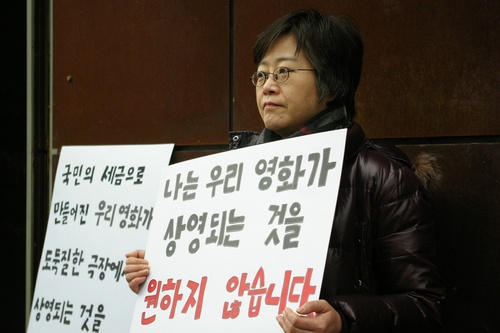 국민의 세금으로
만들어진 우리영화가
도둑질한 극장에서
상영되는 것을
나는 우리 영화가
상영되는 것을
원하지 않습니다